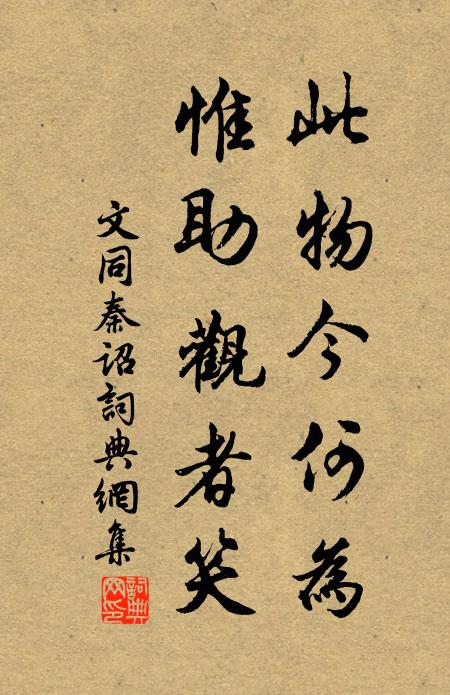 此物今何為
惟助觀者笑
文同秦詔詞典網集
詞典网印